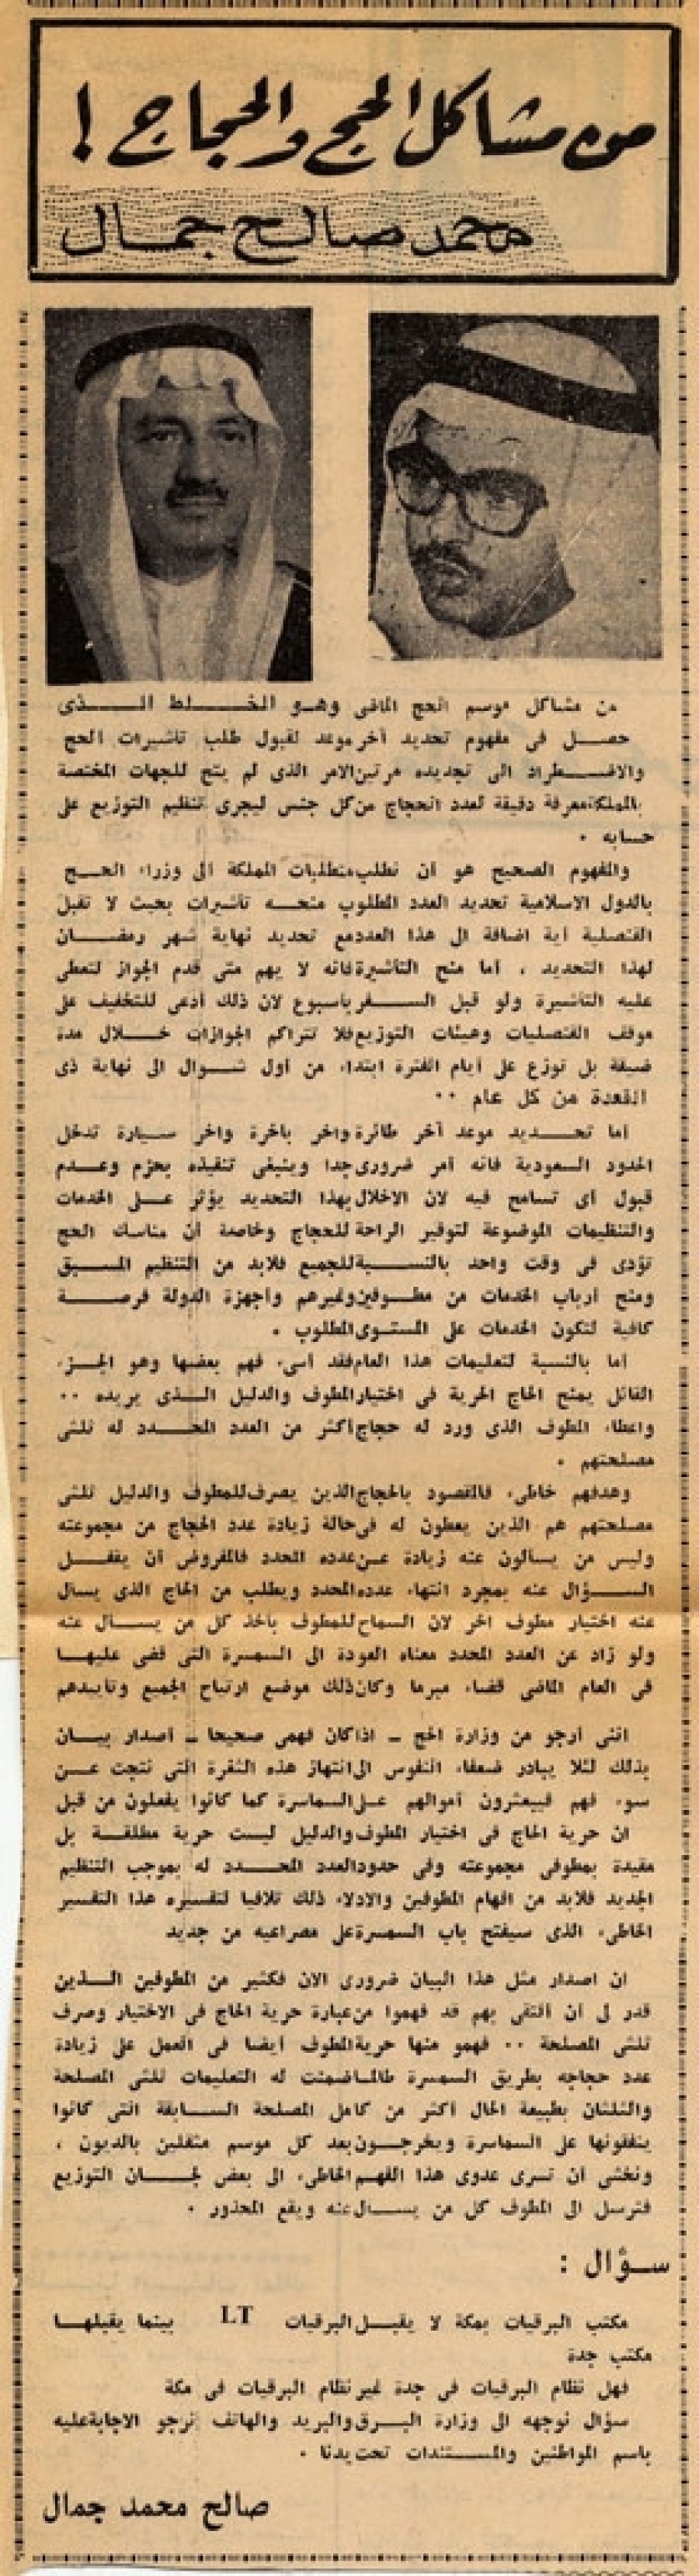 من مشاكل الحج والحجاج !
محمد صالح جمال
من مشاكل موسم الحج الماضى وهو الخلط الذى
حصل فى مفهوم تحديد آخر موعد لقبول طلب تأشيرات الحج
والاضطرار الى تجديده مرتين الامر الذى لم يتح للجهات المختصة
بالمملكة معرفة دقيقة لعدد الحجاج من كل جنس ليجرى تنظيم التوزيع على
حسابه .
والمفهوم الصحيح هو أن تطلب متطلبات المملكة الى وزراء الحج
بالدول الاسلامية تحديد العدد المطلوب منحه تأشيرات بحيث لا تقبل
القنصلية أية اضافة الى هذا العدد مع تحديد نهاية شهر رمضان
لهذا التحديد ، أما منح التأشيرة فانه لا يهم متى قدم الجواز لتعطى
عليه التأشيرة ولو قبل السفر بأسبوع لان ذلك أدعى للتخفيف على
موقف القنصليات وهيئات التوزيع فلا تتراكم الجوازات خلال مدة
ضيقة بل توزع على أيام الفترة ابتداء من أول شوال الى نهاية ذى
القعدة من كل عام ..
أما تحديد موعد آخر طائرة واخر باخرة واخر سيارة تدخل
الحدود السعودية فانه أمر ضرورى جدا وينبغى تنفيذه بحزم وعدم
قبول أى تسامح فيه لان الاخلال بهذا التحديد يؤثر على الخدمات
والتنظيمات الموضوعة لتوفير الراحة للحجاج وخاصة أن مناسك الحج
تؤدى فى وقت واحد بالنسبة للجميع فلابد من التنظيم المسبق
ومنح أرباب الخدمات من مطوفين وغيرهم وأجهزة الدولة فرصة
كافية لتكون الخدمات على المستوى المطلوب .
أما بالنسبة لتعليمات هذا العام فقد أسىء فهم بعضها وهو الجزء
القائل بمنح الحاج الحرية فى اختيار المطوف والدليل الذى يريده ..
واعطاء المطوف الذى ورد له حجاج أكثر من العدد المحدد له ثلثى
مصلحتهم .
وهدفهم خاطىء فالمقصود بالحجاج الذين يصرف للمطوف والدليل ثلثى
مصلحتهم هم الذين يعطون له فى حالة زيادة عدد الحجاج من مجموعته
وليس من يسألون عنه زيادة عن عدده المحدد فالمفروض أن يقفل
السؤال عنه بمجرد انتهاء عدده المحدد ويطلب من الحاج الذى يسأل
عنه اختيار مطوف اخر لان السماح للمطوف بأخذ كل من يسأل عنه
ولو زاد عن العدد المحدد معناه العودة الى السمسرة التى قضى عليها
فى العام الماضى قضاء مبرما وكان ذلك موضع ارتياح الجميع وتأييدهم
اننى أرجو من وزارة الحج ـ اذا كان فهمى صحيحا ـ أصدار بيان
بذلك لئلا يبادر ضعفاء النفوس الى انتهاز هذه الثغرة التى نتجت عن
سوء فهم فيبعثرون أموالهم على السماسرة كما كانوا يفعلون من قبل
ان حرية الحاج فى اختيار المطوف والدليل ليست حرية مطلقة بل
مقيدة بمطوفى مجموعته وفى حدود العدد المحدد له بموجب التنظيم
الجديد فلابد من افهام المطوفين والادلاء ذلك تلافيا لتفسيره هذا التفسير
الخاطىء الذى سيفتح باب السمسرة على مصراعيه من جديد
ان اصدار مثل هذا البيان ضرورى الان فكثير من المطوفين الذين
قدر لى أن ألتقى بهم قد فهموا من عبارة حرية الحاج فى الاختيار وصرف
ثلثى المصلحة .. فهمو منها حرية المطوف أيضا فى العمل على زيادة
عدد حجاجه بطريق السمسرة طالما ضمنت له التعليمات ثلثى المصلحة
والثلثان بطبيعة الحال أكثر من كامل المصلحة السابقة التى كانوا
ينفقونها على السماسرة ويخرجون بعد كل موسم مثقلين بالديون ،
ونخشى أن تسرى عدوى هذا الفهم الخاطىء الى بعض لجان التوزيع
فترسل الى المطوف كل من يسأل عنه ويقع المحذور .
سؤال :
مكتب البرقيات بمكة لا يقبل البرقيات LT بينما يقبلها
مكتب جدة
فهل نظام البرقيات فى جدة غير نظام البرقيات فى مكة
سؤال نوجهه الى وزارة البرق والبريد والهاتف نرجو الاجابة عليه
باسم المواطنين والمستندات تحت يدنا .
صالح محمد جمال